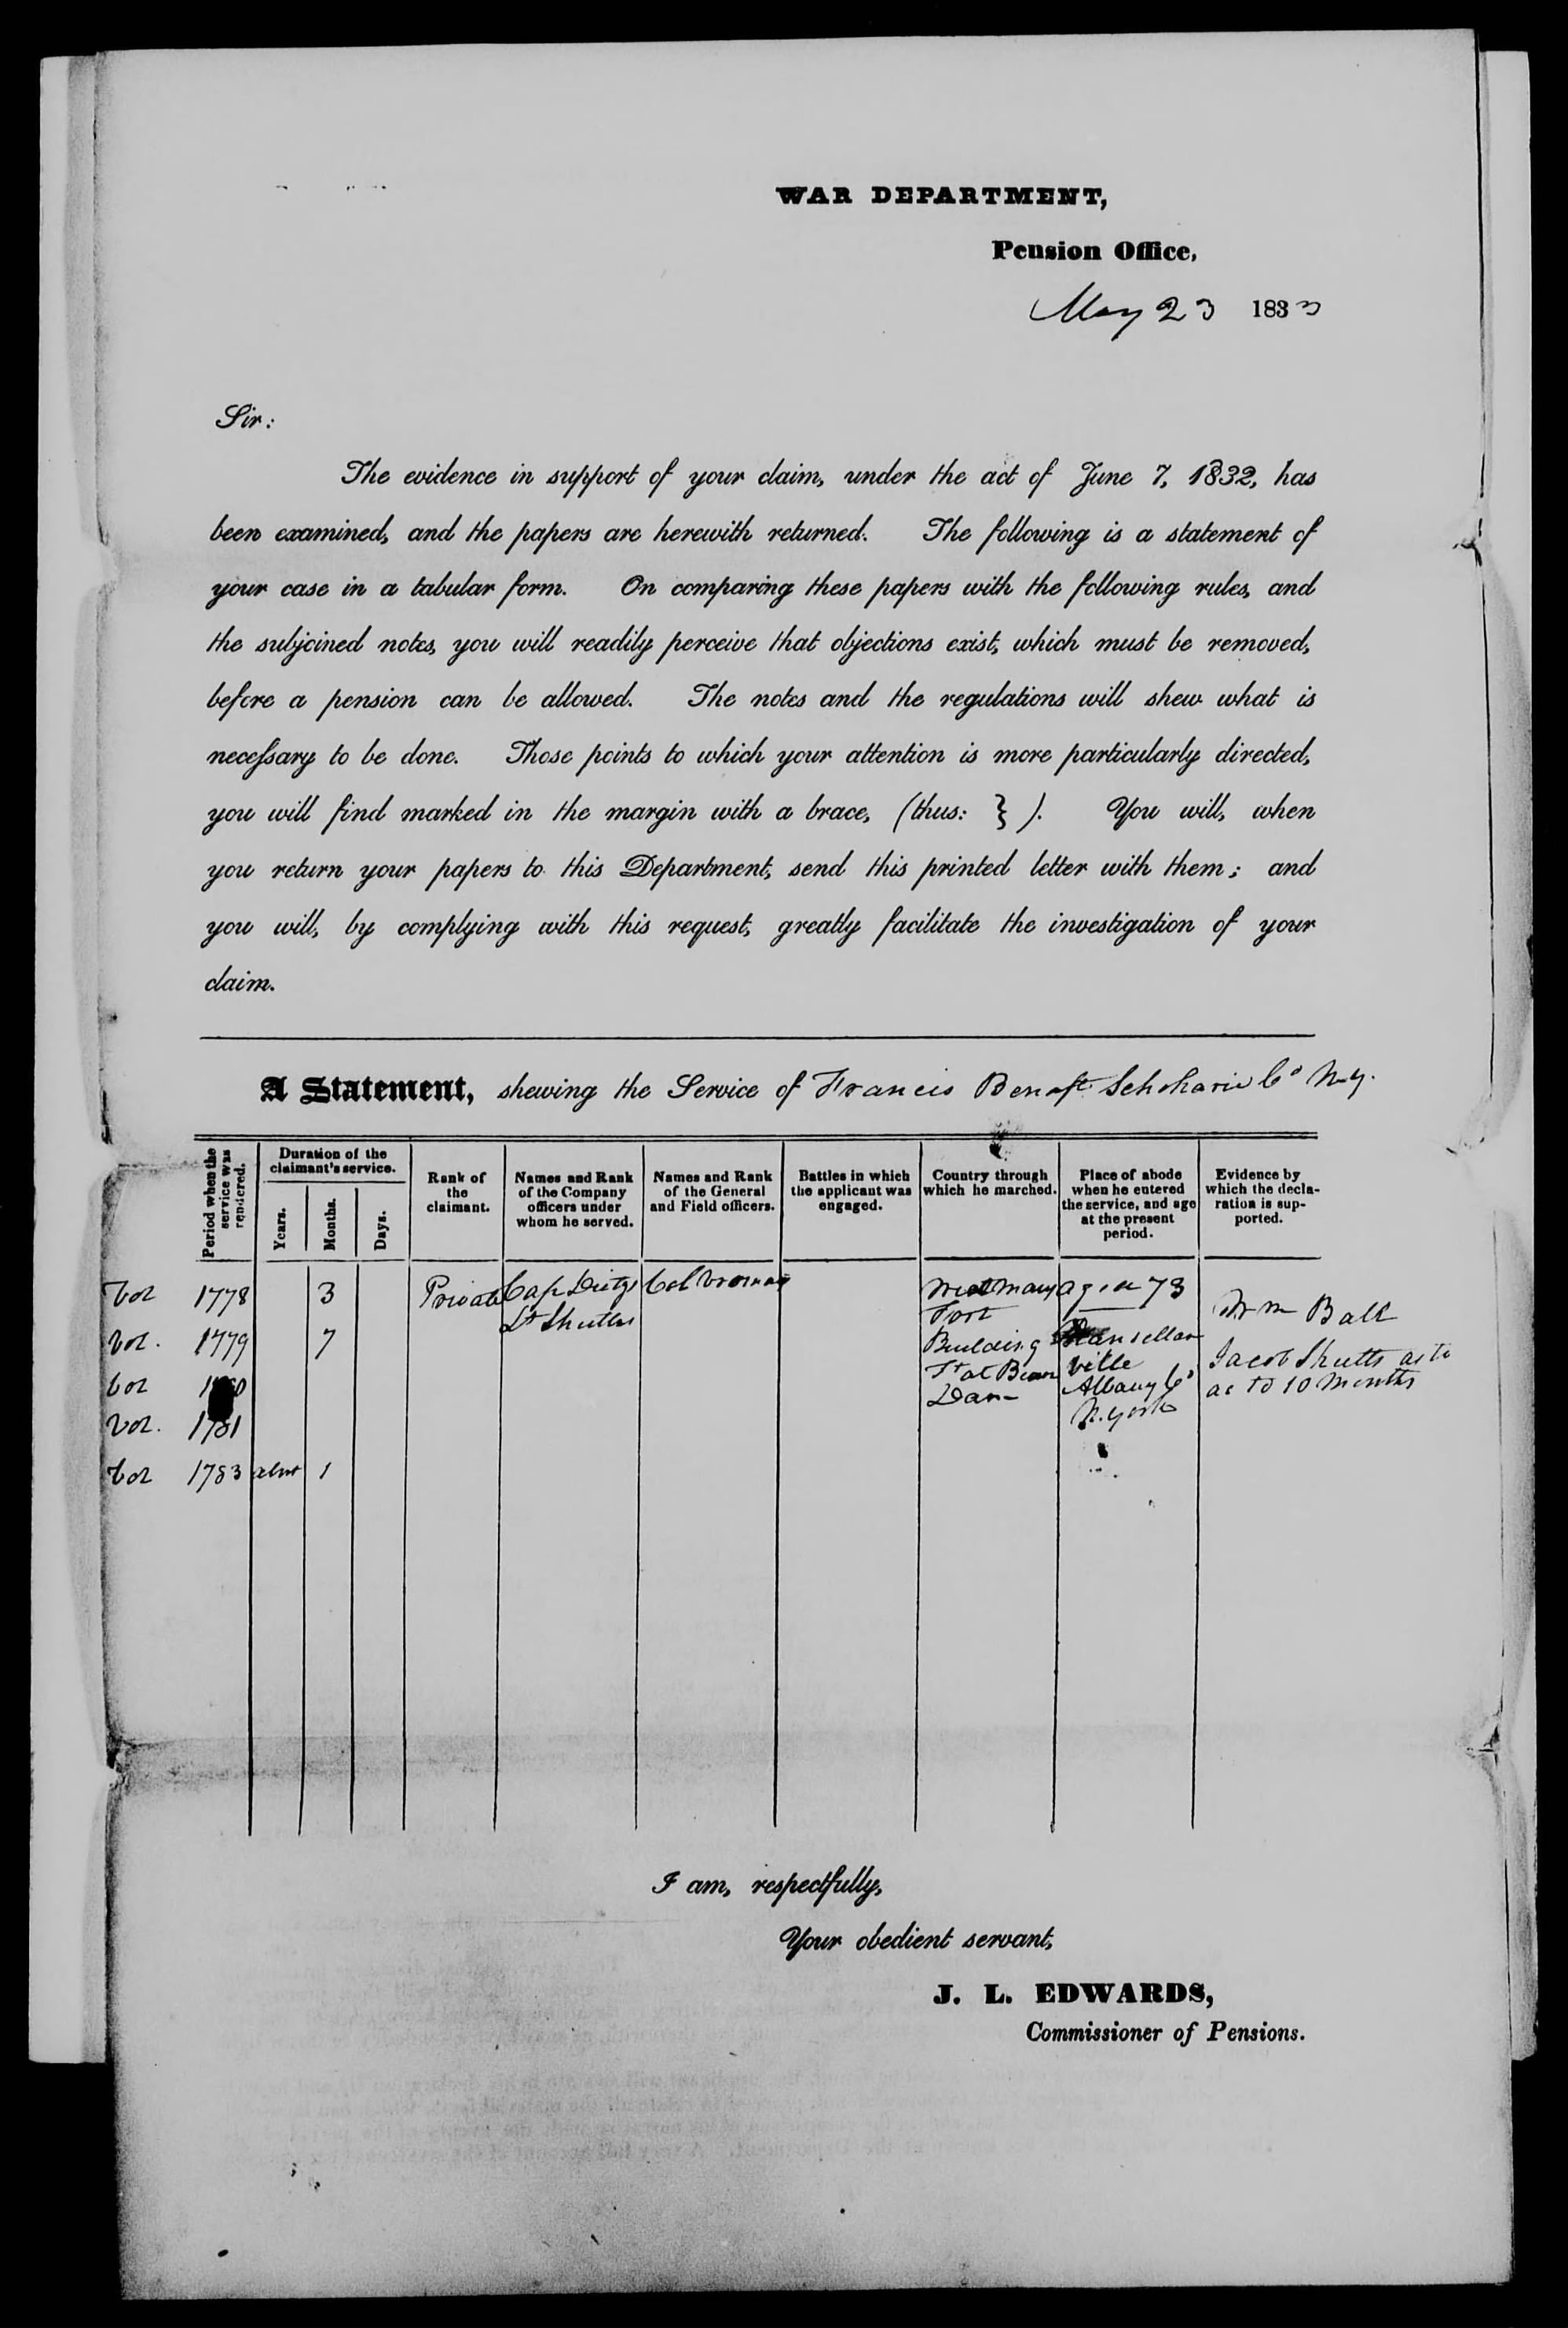 WAR DEPARTMENT,
Pension Office,
May 23 1833
Sir:
The evidence in support of your claim, under the act of June 7, 1832, has
been examined, and the papers are herewith returned. The following is a statement of
your case in a tabular form. On comparing these papers with the following rules, and
the subjoined notes, you will readily perceive that objections exist, which must be removed,
before a pension can be allowed. The notes and the regulations will shew what is
necessary to be done. Those points to which your attention is more particularly directed,
you will find marked in the margin with a brace, (thus: } ). You will, when
you return your papers to this Department, send this printed letter with them; and
you will, by complying with this request, greatly facilitate the investigation of your
claim.
A Statement, shewing the Service of Francis Schoharie Co N.Y.
Period when the service was rendered.
Duration of the claimant's service.
Years.
Months.
Days.
Rank of the claimant.
Names and Rank of the Company officers under whom he served.
Names and Rank of the General and Field officers.
Battles in which the applicant was engaged.
Country through which he marched.
Place of abode when he entered the service, and age at the present period.
Evidence by which the declaration is supported.
Vol 1778 3 Private Cap Dietz Col Vroman aged 73
Fort Wm Ball
Lt Shutts
Vol. 1779 7 Building Ransellar
Ft at Beaver ville Jacob Shutts as to
Vol 1780 Dam Albany Co as to 10 months
Vol. 1781 N. York
Vol 1783 1
I am, respectfully,
Your obedient servant,
J. L. EDWARDS,
Commissioner of Pensions.